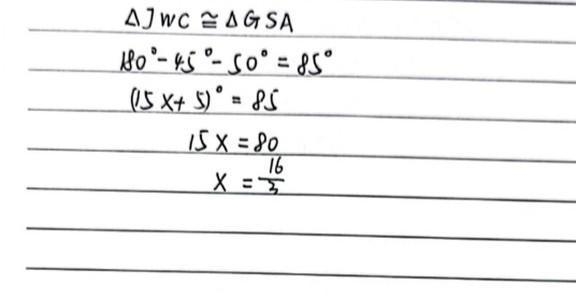 △JWC ≅ △GSA
180° - 45° - 50° = 85°
(15x + 5)° = 85
15x = 80
x = 16/3